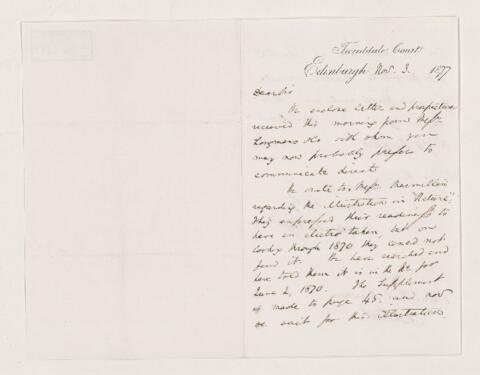 Tweeddale Court
Edinburgh Nov. 3. 1877
Dear Sir
We enclose letter and prospectus
received this morning from Messrs
Longmans & Co with whom you
may now probably prefer to
communicate direct.
We wrote to Messrs Macmillan
regarding the illustration in "Nature".
They expressed their readiness to
have an electro taken, but on
looking through 1870 they could not
find it. We have searched and
have told them it is in the No for
June 2, 1870. The Supplement
is made to page 45. and now
we wait for this illustration